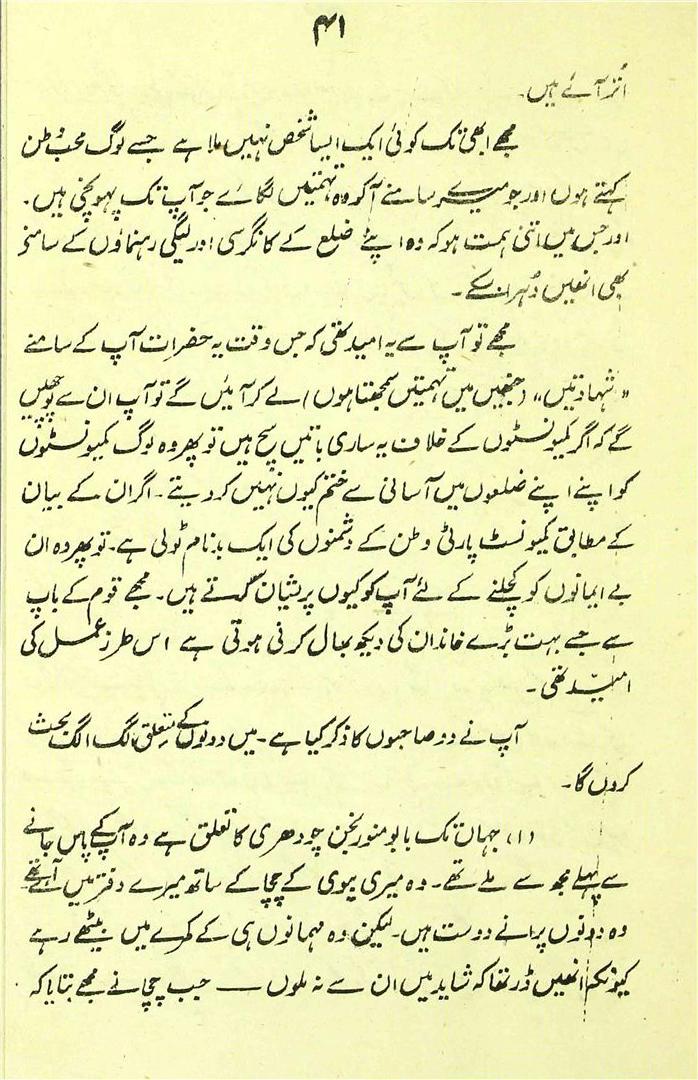 ۴۱
اُتر آئے ہیں۔
مجھے ابھی تک کوئی ایک ایسا شخص نہیں ملا ہے جسے لوگ محب وطن
کہتے ہوں اور جو میرے سامنے آکر وہ تہمتیں لگائے جو آپ تک پہونچی ہیں۔
اور جس میں اتنی ہمت ہو کہ وہ اپنے ضلع کے کانگرسی اور لیگی رہنماؤں کے سامنے
بھی انھیں دُہرا سکے۔
مجھے تو آپ سے یہ امید تھی کہ جس وقت یہ حضرات آپ کے سامنے
"شہادتیں" (جنھیں میں تہمتیں سمجھتا ہوں) لے کر آئیں گے تو آپ ان سے پوچھیں
گے کہ اگر کمیونسٹوں کے خلاف یہ ساری باتیں سچ ہیں تو پھر وہ لوگ کمیونسٹوں
کو اپنے اپنے ضلعوں میں آسانی سے ختم کیوں نہیں کر دیتے۔ اگر ان کے بیان
کے مطابق کمیونسٹ پارٹی وطن کے دشمنوں کی ایک بدنام ٹولی ہے۔ تو پھر وہ ان
بے ایمانوں کو کچلنے کے لئے آپ کو کیوں پریشان کرتے ہیں۔ مجھے قوم کے باپ
سے جسے بہت بڑے خاندان کی دیکھ بھال کرنی ہوتی ہے اس طرز عمل کی
امید تھی۔
آپ نے دو صاحبوں کا ذکر کیا ہے۔ میں دونوں کے متعلق الگ الگ بحث
کروں گا۔
(۱) جہاں تک بابو منورنجن چودھری کا تعلق ہے وہ آپ کے پاس جانے
سے پہلے مجھ سے ملے تھے۔ وہ میری بیوی کے چچا کے ساتھ میرے دفتر میں آئے تھے
وہ دونوں پرانے دوست ہیں۔ لیکن وہ مہمانوں ہی کے کمرے میں بیٹھے رہے
کیونکہ انھیں ڈر تھا کہ شاید میں ان سے نہ ملوں —— جب چچا نے مجھے بتایا کہ